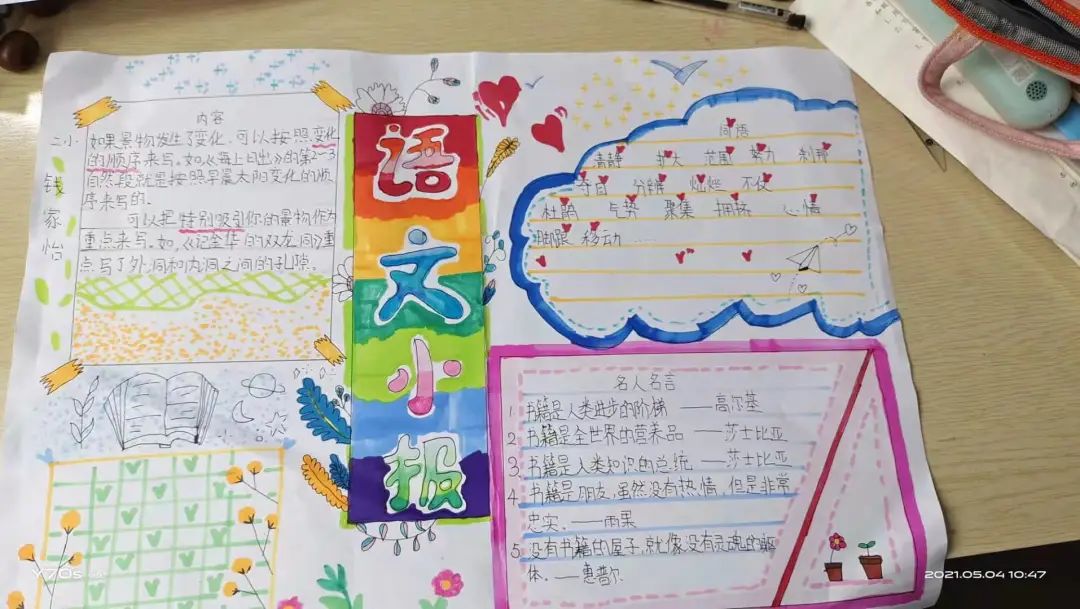 语文小报
内容
如果景物发生了变化,可以按照变化
的顺序来写。如,《海上日出》的第2-3
自然段就是按照早晨太阳变化的顺
序来写的。
可以把特别吸引你的景物作为
重点来写。如,《记金华的双龙洞》重
点写了外洞和内洞之间的孔隙。
二小
钱
家
怡
词语
清静 扩大 范围 努力 刹那
夺目 分辨 灿烂 不仅
杜鹃 气势 聚集 拥挤 心情
脚跟 移动 ……
名人名言
1. 书籍是人类进步的阶梯 ——高尔基
2. 书籍是全世界的营养品 ——莎士比亚
3. 书籍是人类知识的总统 ——莎士比亚
4. 书籍是朋友,虽然没有热情,但是非常
忠实。——雨果
5. 没有书籍的屋子,就像没有灵魂的躯
体。——惠普尔
Y70s
2021.05.04 10:47